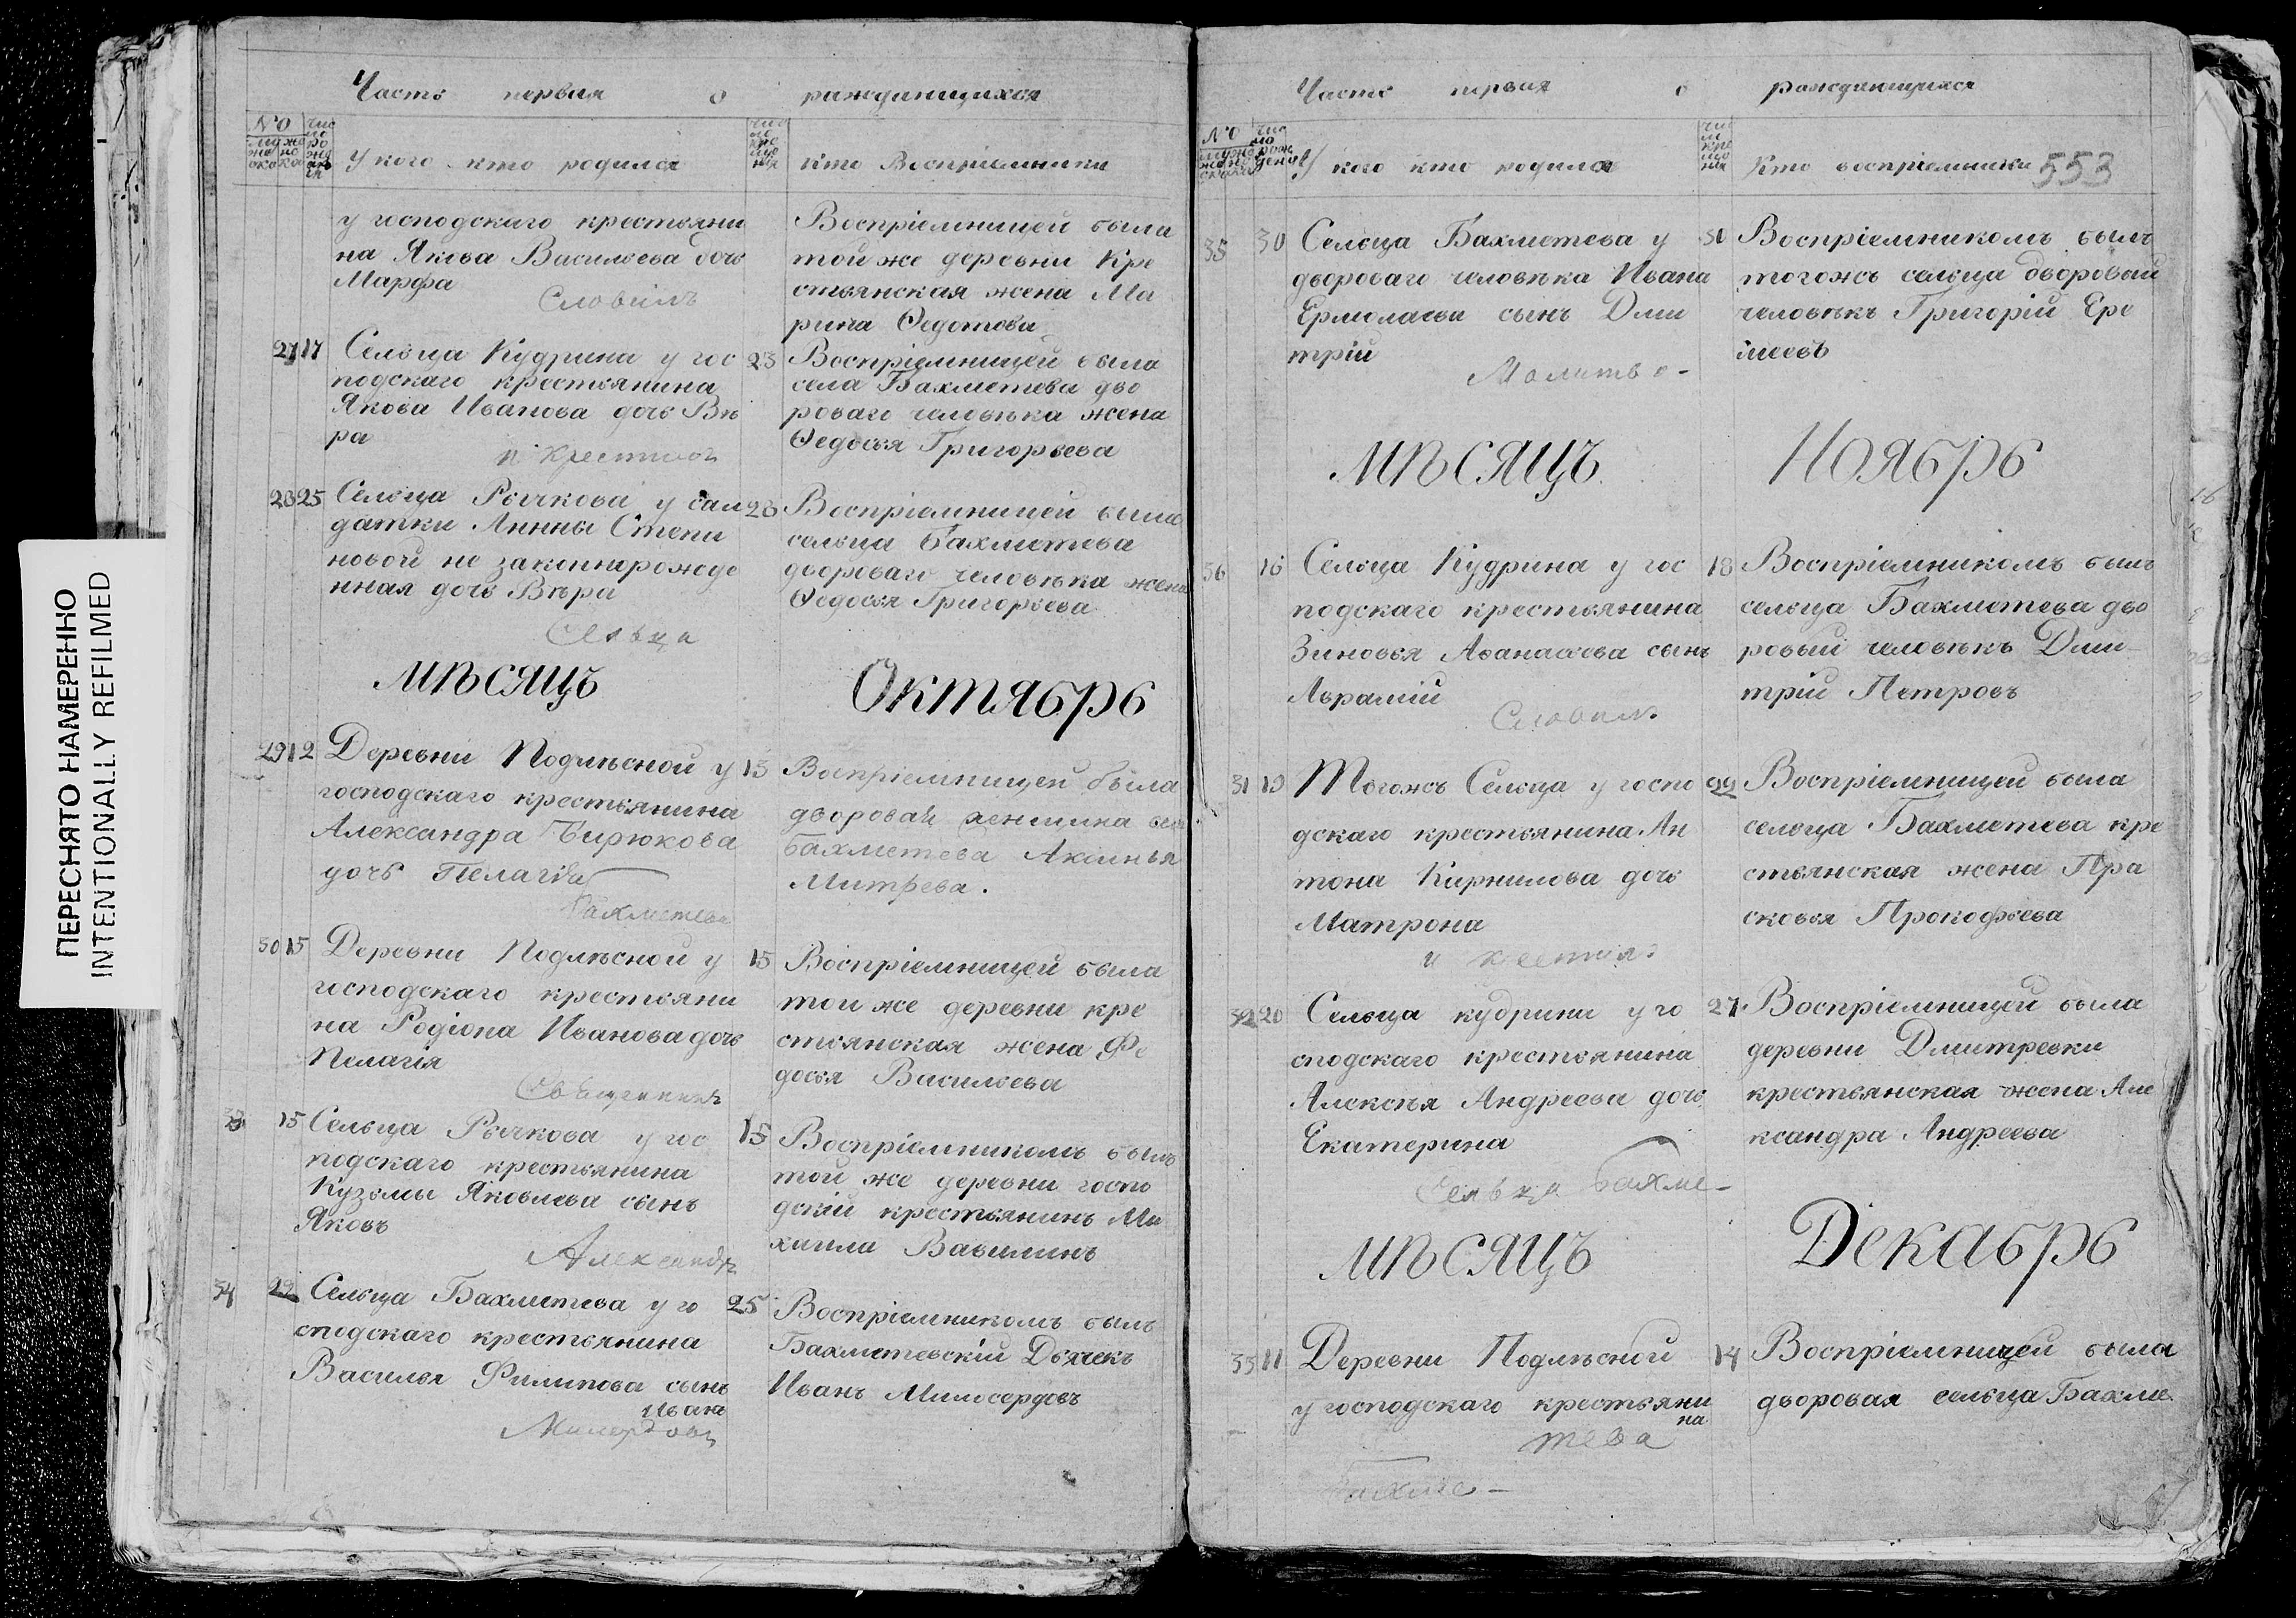 ПЕРЕСНЯТО НАМЕРЕННО
INTENTIONALLY REFILMED
Часть первая о раждающихся
№
у кого кто родился
кто Воспріемники
у господскаго крестьяни
на Якова Васильева дочь
Марфа
Воспріемницей была
той же деревни Кре
стьянская жена Ма
рина Ѳедотова
27 17 Сельца Кудрина у гос
подскаго крестьянина
Якова Иванова дочь Вѣ
ра
и крестилъ
23 Воспріемницей была
села Бахметева дво
роваго человѣка жена
Ѳедосья Григорьева
28 25 Сельца Рычкова у сал
датки Анны Степа
новой не законнорожде
нная дочь Вѣра
Сельца
28 Воспріемницей была
сельца Бахметева
двороваго человѣка жена
Ѳедосья Григорьева
мѣсяцъ Октябрь
29 12 Деревни Подлѣсной у
господскаго крестьянина
Александра Бирюкова
дочь Пелагія
Бахметева
13 Воспріемницей была
дворовая женщина
Бахметева Аксинья
Митрева.
30 15 Деревни Подлѣсной у
господскаго крестьяни
на Родіона Иванова дочь
Пелагія
Священникъ
15 Воспріемницей была
той же деревни кре
стьянская жена Фе
досья Васильева
15 Сельца Рычкова у гос
подскаго крестьянина
Кузьмы Яковлева сынъ
Яковъ
Александръ
15 Воспріемникомъ былъ
той же деревни госпо
дскій крестьянинъ Ми
хаила Вавилинъ
34 22 Сельца Бахметева у го
сподскаго крестьянина
Василья Филипова сынъ
Иванъ
25 Воспріемникомъ былъ
Бахметевскій Дьячекъ
Иванъ Милосердовъ
Часть первая о раждающихся
№
У кого кто родился
Кто воспріемники 553
35 30 Сельца Бахметева у
двороваго человѣка Ивана
Ермолаева сынъ Дми
трій
Молитво-
31 Воспріемникомъ былъ
тогожъ сельца дворовый
человѣкъ Григорій Ере
меевъ
мѣсяцъ Ноябрь
36 16 Сельца Кудрина у гос
подскаго крестьянина
Зиновья Аѳанасьева сынъ
Аврамій
18 Воспріемникомъ былъ
сельца Бахметева дво
ровый человѣкъ Дми-
трій Петровъ
31 19 Тогожъ Сельца у госпо
дскаго крестьянина Ан
тона Карнилова дочь
Матрона
22 Воспріемницей была
сельца Бахметева кре
стьянская жена Пра
сковья Прокофьева
32 20 Сельца кудрина у го
сподскаго крестьянина
Алексѣя Андреева дочь
Екатерина
Сельца Бахме-
27 Воспріемницей была
деревни Дмитревки
крестьянская жена Але
ксандра Андреева
мѣсяцъ Декабрь
33 11 Деревни Подлѣсной
у господскаго крестьяни
на
тева
Бахме-
14 Воспріемницей была
дворовая сельца Бахме